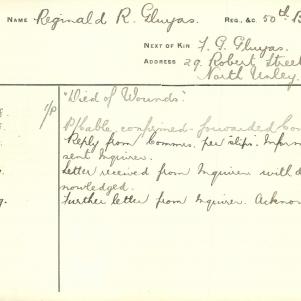 NAME Reginald R. Gluyas. REG., &C. 50th B
NEXT OF KIN F. G. Gluyas.
ADDRESS 29 Robert Street
North Unley.
1/P "Died of Wounds".
P/Cable, confirmed - forwarded
Reply from Commrs. per slips.
sent Inquirer.
Letter received from Inquirer with d
nowledged.
Further letter from Inquirer. Acknow